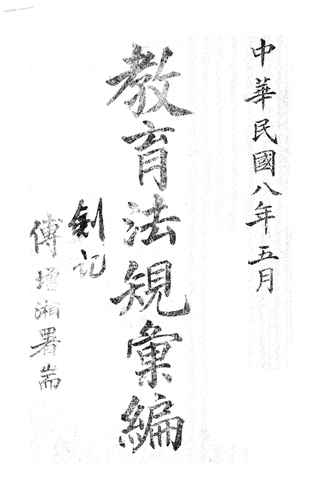 中華民國八年五月
教育法規彙編
釗記
傅增湘署耑